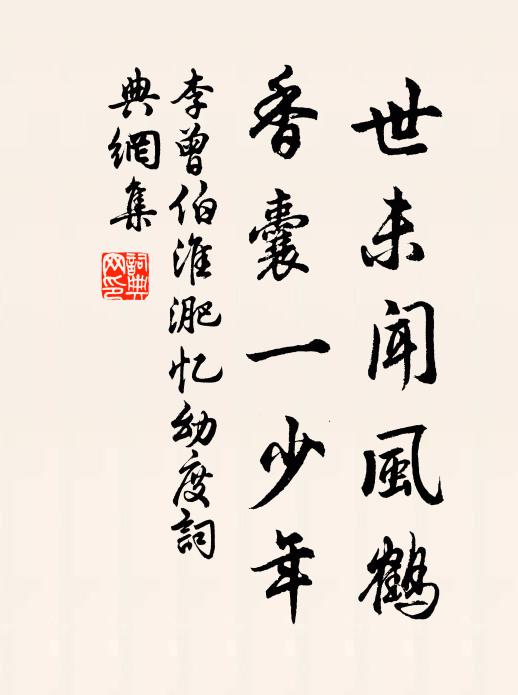 世未闻風鹤
香囊一少年
李曾伯淮淝忆幼度詞
典網集
詞典
网印